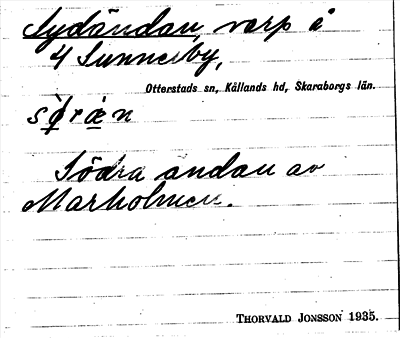 Sydändan, varp å
4 Sunnersby,
Otterstads sn, Kållands hd, Skaraborgs län.
Södra ändan av
Marholmen.
THORVALD JONSSON 1935.